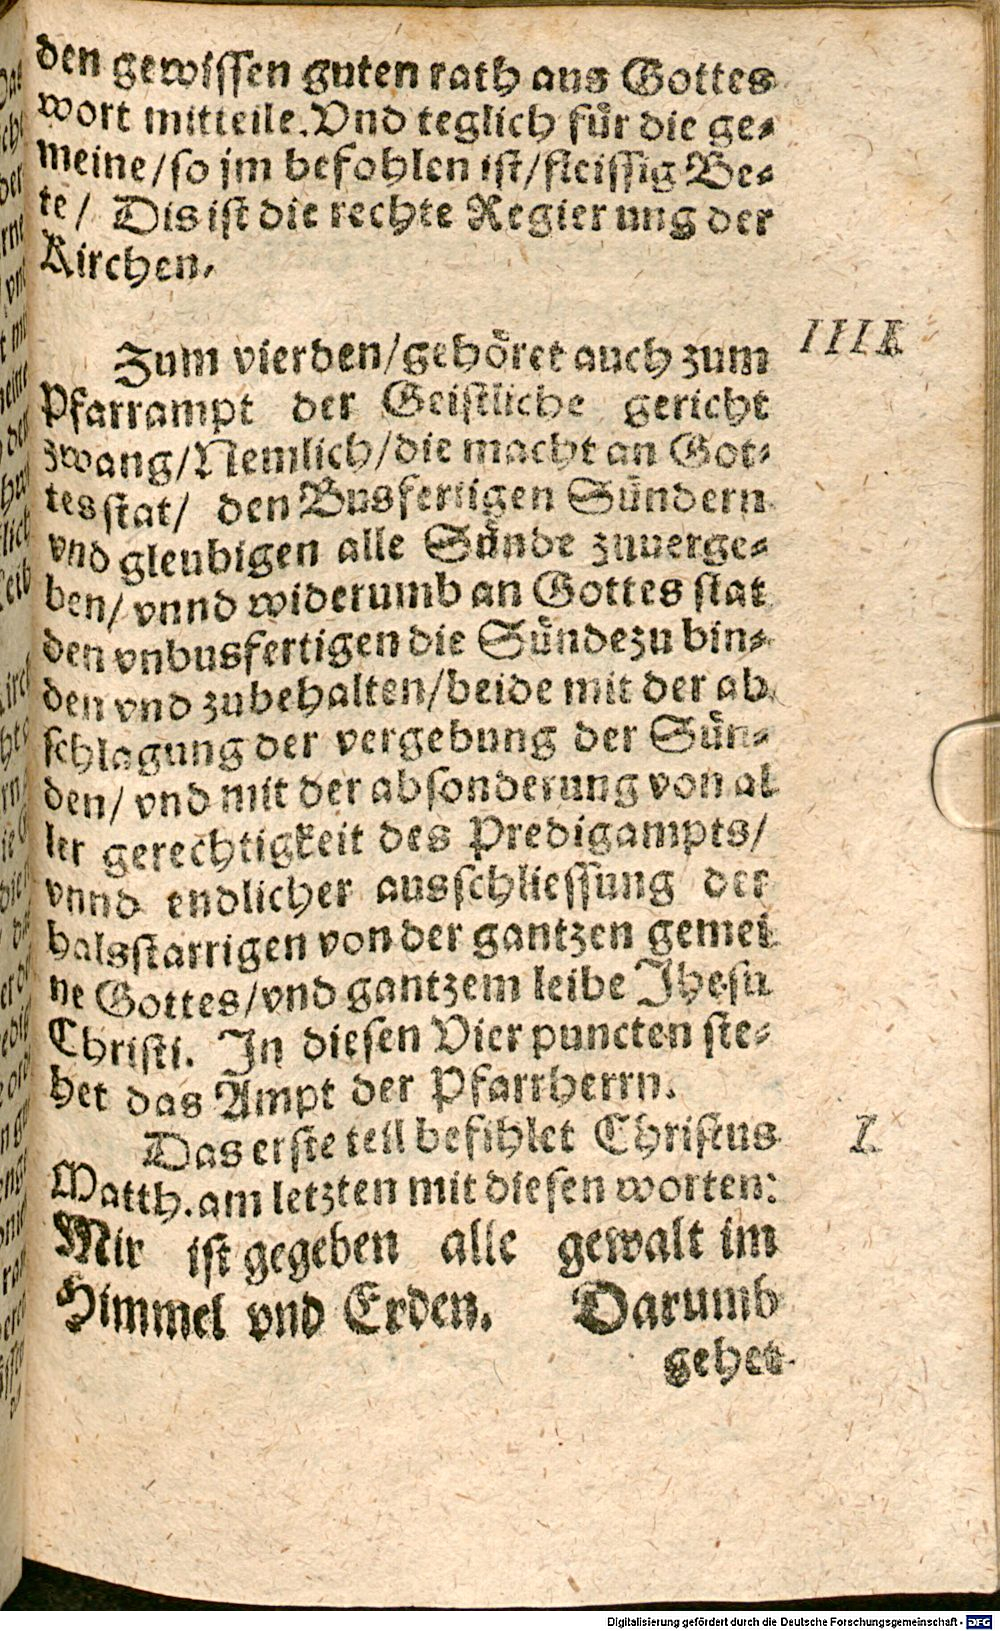 den gewissen guten rath aus Gottes
wort mitteile. Vnd teglich für die ge-
meine/so jm befohlen ist/fleissig Be-
te/ Dis ist die rechte Regierung der
Kirchen.
IIII
Zum vierden/gehöret auch zum
Pfarrampt der Geistliche gericht
zwang/Nemlich/die macht an Got-
tes stat/ den Busfertigen Sündern
vnd gleubigen alle Sünde zuuerge-
ben/ vnnd widerumb an Gottes stat
den vnbusfertigen die Sünde zu bin-
den vnd zubehalten/beide mit der ab
schlagung der vergebung der Sün-
den/ vnd mit der absonderung von al
ler gerechtigkeit des Predigampts/
vnnd endlicher ausschliessung der
halsstarrigen von der gantzen gemei
ne Gottes/vnd gantzem leibe Jhesu
Christi. In diesen Vier puncten ste-
het das Ampt der Pfarrherrn.
Das erste teil befihlet Christus
I.
Matth. am letzten mit diesen worten:
Mir ist gegeben alle gewalt im
Himmel vnd Erden. Darumb
gehet
Digitalisierung gefördert durch die Deutsche Forschungsgemeinschaft - DFG